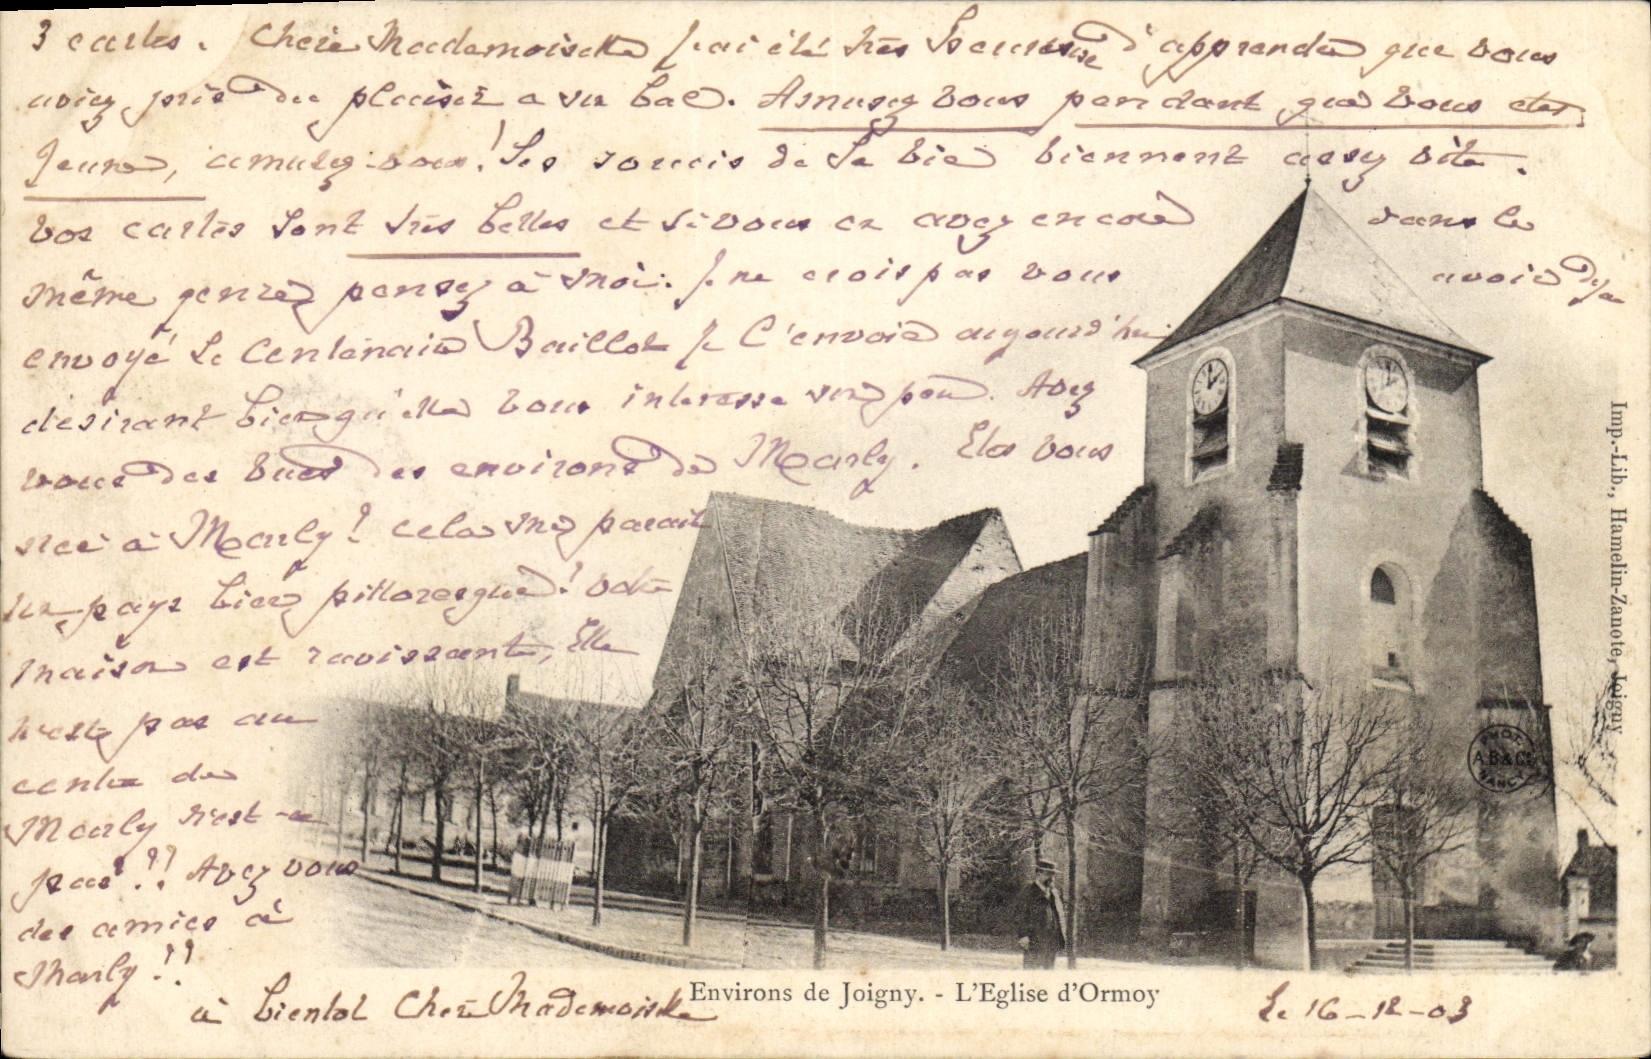 3 cartes. Chère Mademoiselle j'ai été très heureuse d'apprendre que vous
aviez pris du plaisir a un bal. Amusez vous pendant que vous etes
jeune, amusez-vous! Les soucis de la vie viennent assez vite.
Vos cartes sont très belles et si vous en avez encore dans le
même genre pensez à moi. Je ne crois pas vous avoir deja
envoyé le Centenaire Baillot je l'envoie aujourd'hui
désirant bien qu'elle vous interesse un peu. Avez
vous des vues des environs de Marly. Etes vous
née à Marly? cela me parait
un pays bien pittoresque! Votre
maison est ravissante, Elle
n'est pas au
centre de
Marly n'est-ce
pas!?! Avez vous
des amies à
Marly!?
à bientot Chère Mademoiselle
Environs de Joigny. - L'Eglise d'Ormoy
Le 16-12-03
Imp.-Lib., Hamelin-Zanote, Joigny
PHOT.
A.B&Cie
NANCY